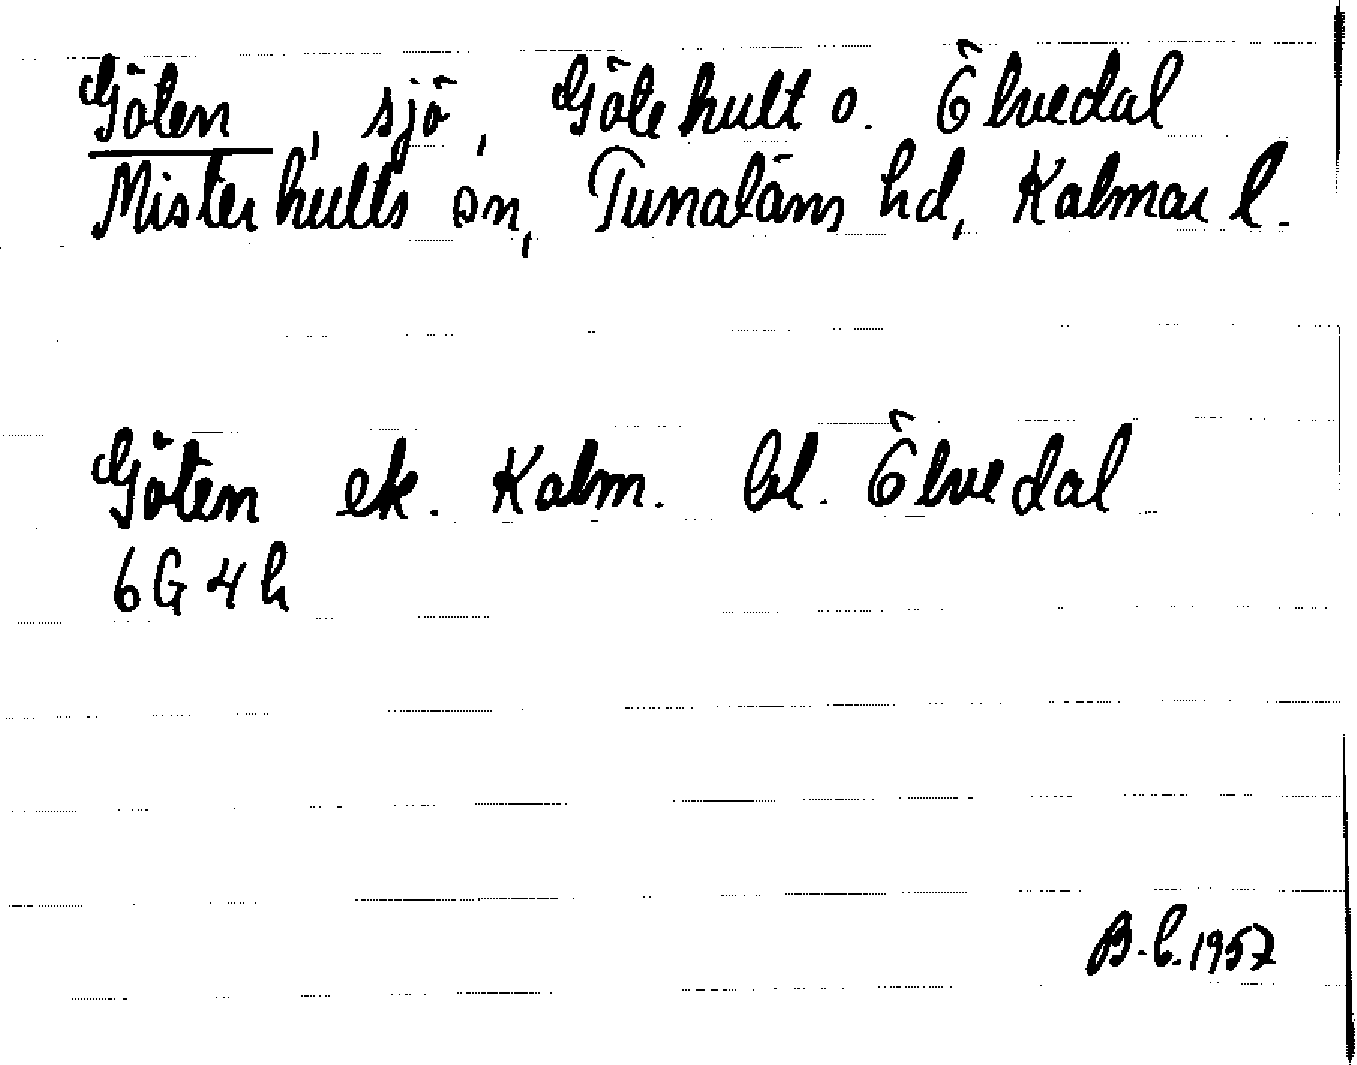 Göten, sjö, Götehult o. Ölvedal
Misterhults sn, Tunaläns hd, Kalmar l.
Göten ek. Kalm. bl. Ölvedal
6G4h
B-b. 1957